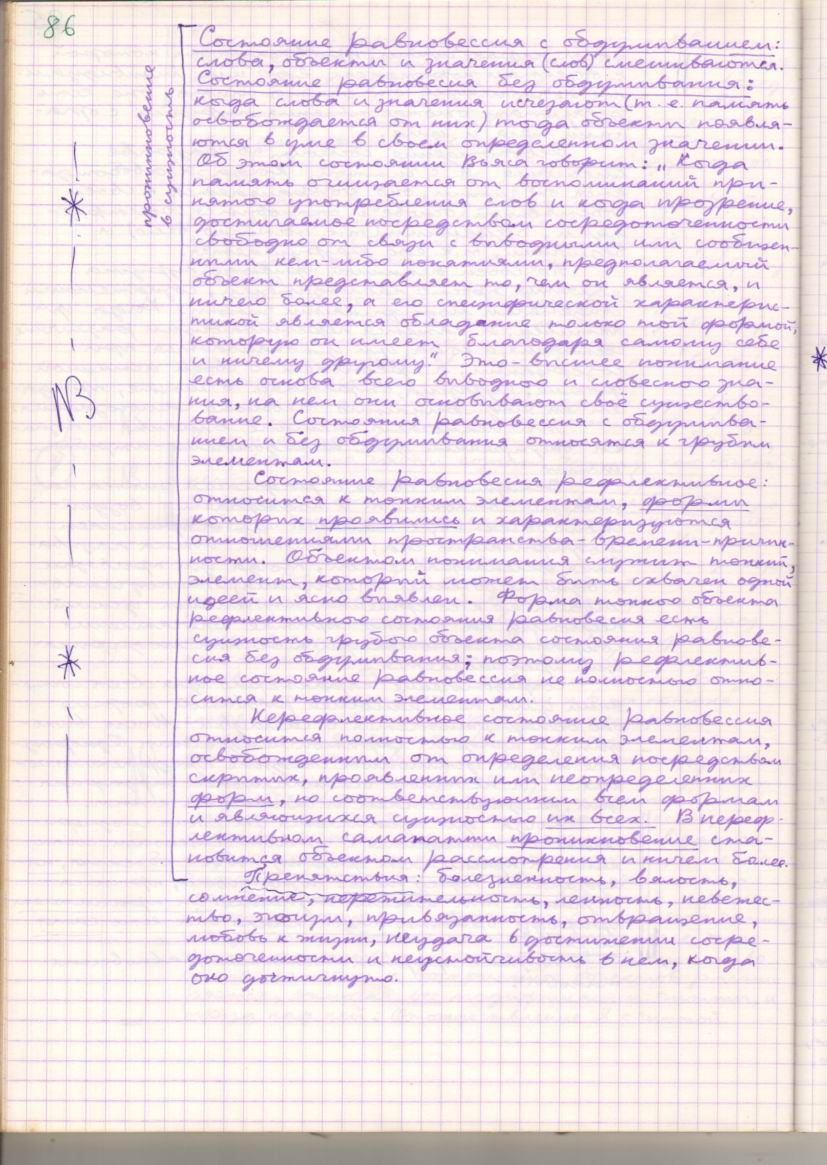 86
проникновение
в сущность
NB
Состояние равновессия с обдумыванием:
слова, объекты и значения (слов) смешиваются.
Состояние равновесия без обдумывания:
когда слова и значения исчезают (т.е. память
освобождается от них) тогда объекты появля-
ются в уме в своем определенном значении.
Об этом состоянии Вьяса говорит: „Когда
память очищается от воспоминаний при-
нятого употребления слов и когда прозрение,
достигаемое посредством сосредоточенности
свободно от связи с выводными или сообщен-
ными кем-либо понятиями, предполагаемый
объект представляет то, чем он является, и
ничего более, а его специфической характерис-
тикой является обладание только той формой,
которую он имеет благодаря самому себе
и ничему другому." Это-высшее понимание
есть основа всего выводного и словесного зна-
ния, на нем они основывают своё существо-
вание. Состояния равновессия с обдумыва-
нием и без обдумывания относятся к грубым
элементам.
Состояние равновесия рефлективное:
относится к тонким элементам, формы
которых проявились и характеризуются
отношениями пространства-времени-причин-
ности. Объектом понимания служит тонкий,
элемент, который может быть схвачен одной
идеей и ясно выявлен. Форма тонкого объекта
рефлективного состояния равновесия есть
сущность грубого объекта состояния равнове-
сия без обдумывания; поэтому рефлектив-
ное состояние равновессия не полностью отно-
сится к тонким элементам.
Нерефлективное состояние равновессия
относится полностью к тонким элементам,
освобожденным от определения посредством
скрытых, проявленных или неопределенных
форм, но соответствующим всем формам
и являющихся сущностью их всех. В нереф-
лективном самапатти проникновение ста-
новится объектом рассмотрения и ничем более.
Препятствия: болезненность, вялость,
сомнение, нерешительность, леность, невежес-
тво, эгоизм, привязанность, отвращение,
любовь к жизни, неудача в достижении сосре-
доточенности и неустойчивость в нем, когда
оно достигнуто.